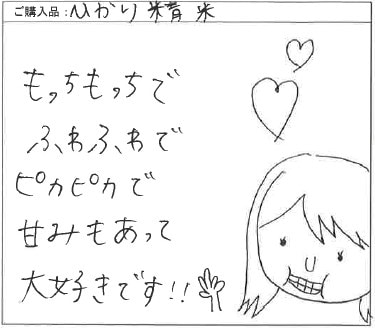 ご購入品：ひかり精米
もっちもっちで
ふわふわで
ピカピカで
甘みもあって
大好きです!!